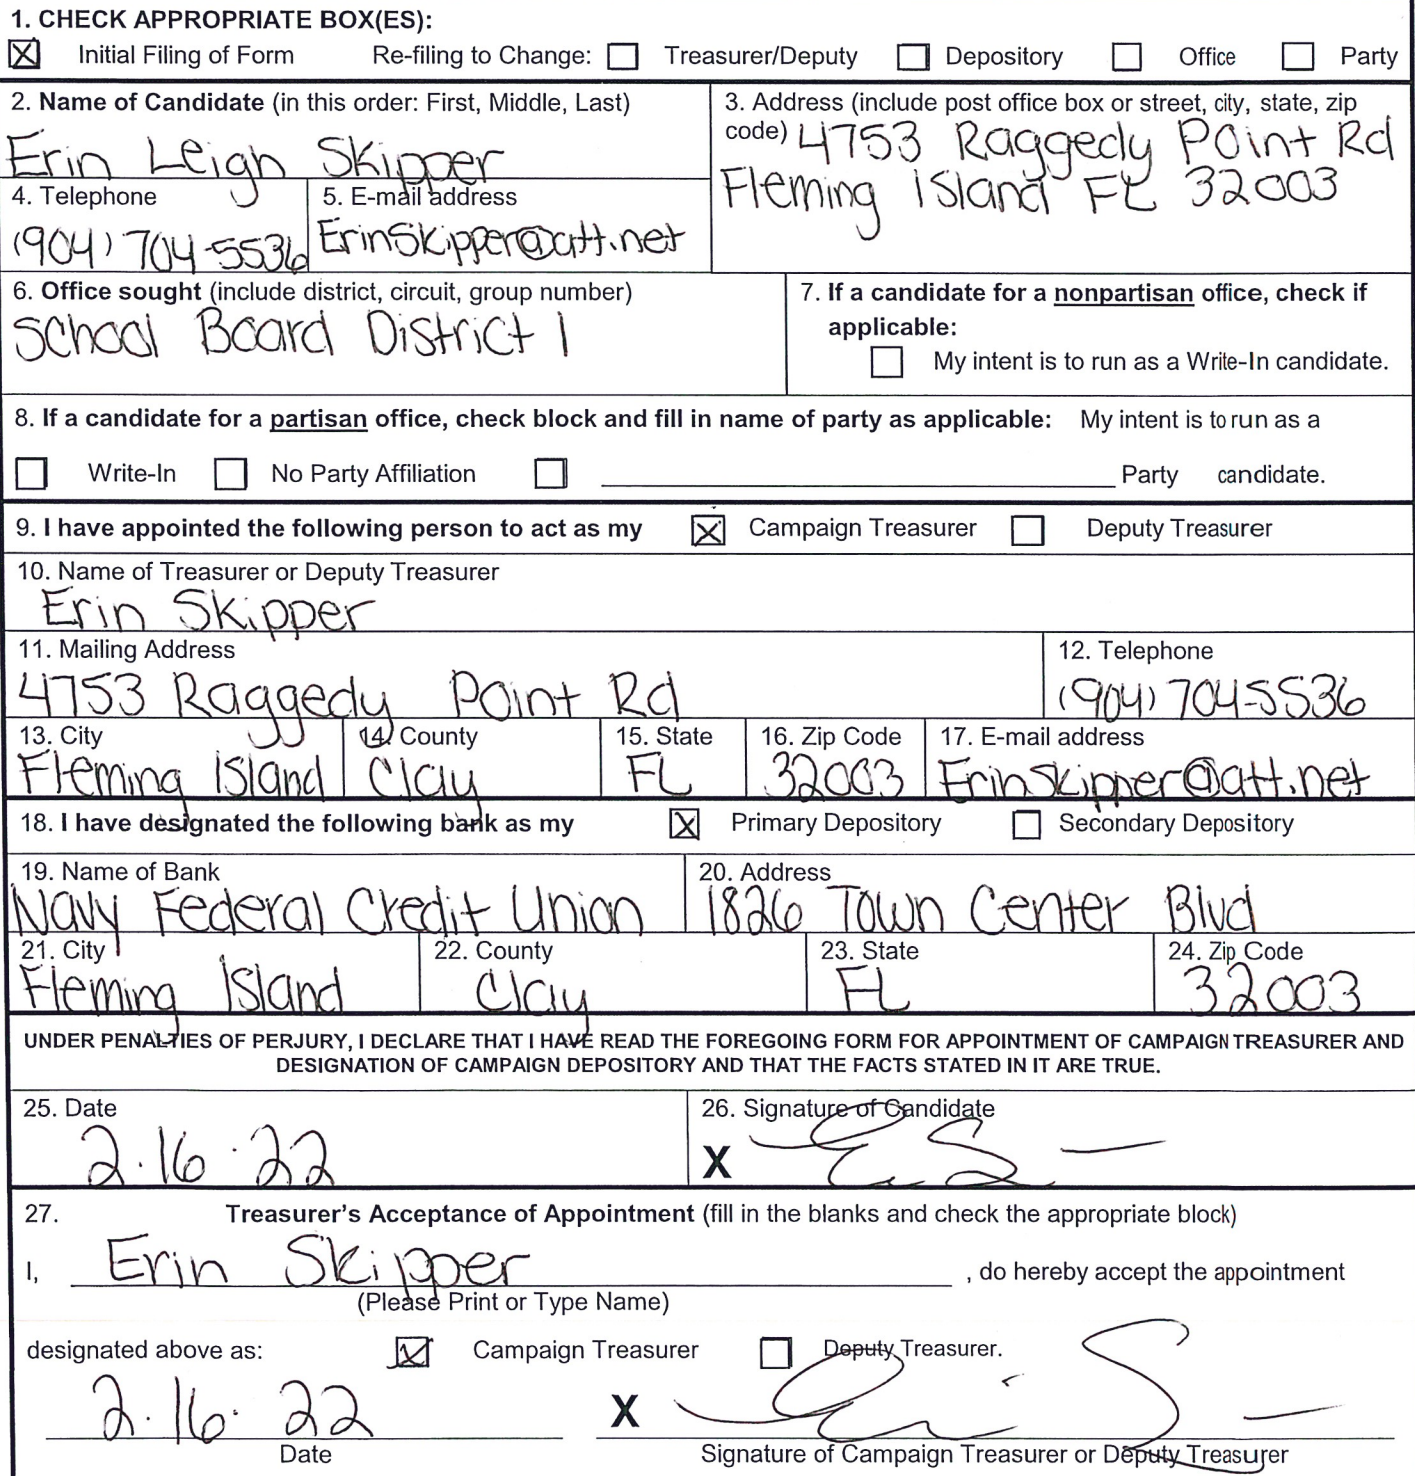 1. CHECK APPROPRIATE BOX(ES):
Initial Filing of Form Re-filing to Change: Treasurer/Deputy Depository Office Party
2. Name of Candidate (in this order: First, Middle, Last)
Erin Leigh Skipper
3. Address (include post office box or street, city, state, zip
code) 4753 Raggedy Point Rd
Fleming Island FL 32003
4. Telephone
(904) 704-5536
5. E-mail address
ErinSkipper@att.net
6. Office sought (include district, circuit, group number)
School Board District 1
7. If a candidate for a nonpartisan office, check if
applicable:
My intent is to run as a Write-In candidate.
8. If a candidate for a partisan office, check block and fill in name of party as applicable: My intent is to run as a
Write-In No Party Affiliation Party candidate.
9. I have appointed the following person to act as my Campaign Treasurer Deputy Treasurer
10. Name of Treasurer or Deputy Treasurer
Erin Skipper
11. Mailing Address
4753 Raggedy Point Rd
12. Telephone
(904) 704-5536
13. City
Fleming Island
14. County
Clay
15. State
FL
16. Zip Code
32003
17. E-mail address
ErinSkipper@att.net
18. I have designated the following bank as my Primary Depository Secondary Depository
19. Name of Bank
Navy Federal Credit Union
20. Address
1826 Town Center Blvd
21. City
Fleming Island
22. County
Clay
23. State
FL
24. Zip Code
32003
UNDER PENALTIES OF PERJURY, I DECLARE THAT I HAVE READ THE FOREGOING FORM FOR APPOINTMENT OF CAMPAIGN TREASURER AND
DESIGNATION OF CAMPAIGN DEPOSITORY AND THAT THE FACTS STATED IN IT ARE TRUE.
25. Date
2.16.22
26. Signature of Candidate
X
27. Treasurer's Acceptance of Appointment (fill in the blanks and check the appropriate block)
I, Erin Skipper , do hereby accept the appointment
(Please Print or Type Name)
designated above as: Campaign Treasurer Deputy Treasurer.
2.16.22 X
Date Signature of Campaign Treasurer or Deputy Treasurer